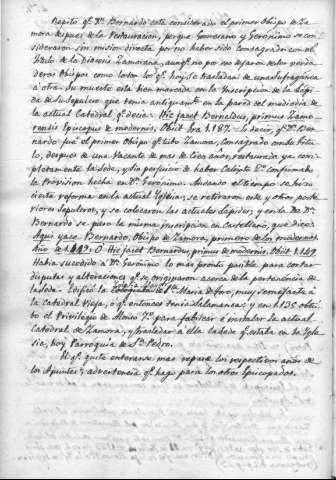 Repito q.e D.n Bernardo está considerado el primer Obispo de Za-
mora despues de la Restauracion, porque Gomersano y Gerónimo se con-
sideraron sin mision directa por no haber sido consagrados con el
título de la Diócesis Zamorana, aunq.e no por eso dejaron de ser verda-
deros Obispos como los son los q.e hoy se trasladan de una sufraganea
á otra. Su muerte esta bien marcada en la Inscripcion de la Lápi-
da de su Sepulcro que tenia antiguam.te en la pared del mediodia de
la actual Catedral q.e decia: Hic jacet Bernaldus, primus Zamo-
rensis Episcopus de modernis, Obiit Era 1187. Es decir, q.e D.n Ber-
nardo fué el primer Obispo q.e tubo Zamora, Consagrado con su títu-
lo, despues de una Vacante de mas de cien años, restaurada ya com-
pletamente la Sede, y sin perjuicio de haber Calixto 2.º confirmado
la Provision hecha en D.n Gerónimo. Andando el tiempo se hizo
cierta reforma en la actual Iglesia, se retiraron este y otros poste-
riores Sepulcros, y se colocaron las actuales Lápidas, y en la de D.n
Bernardo se puso la misma inscripcion en Castellano, que dice:
Aqui yace Bernardo, Obispo de Zamora, primero de los modernos
Año de 1149. Hic jacet Bernardus, primus de modernis, Obiit 1149
Habia sucedido á D.n Gerónimo lo mas pronto posible para cortar
disputas y altercaciones q.e se originaron acerca de la pertenencia de
la Sede. Edificó la S.ta Maria muy semejante á
la Catedral Vieja, q.e entonces tenia Salamanca; y en 1135 obtu-
bo el Privilegio de Alonso 7.º para fabricar é instalar la actual
Catedral de Zamora, y trasladar á ella la Sede q.e estaba en la Igle-
sia, hoy Parroquia de S.n Pedro.
El q.e quite enterarse mas repase los respectivos años de
los Apuntes; advertencia q.e hago para los otros Episcopados.